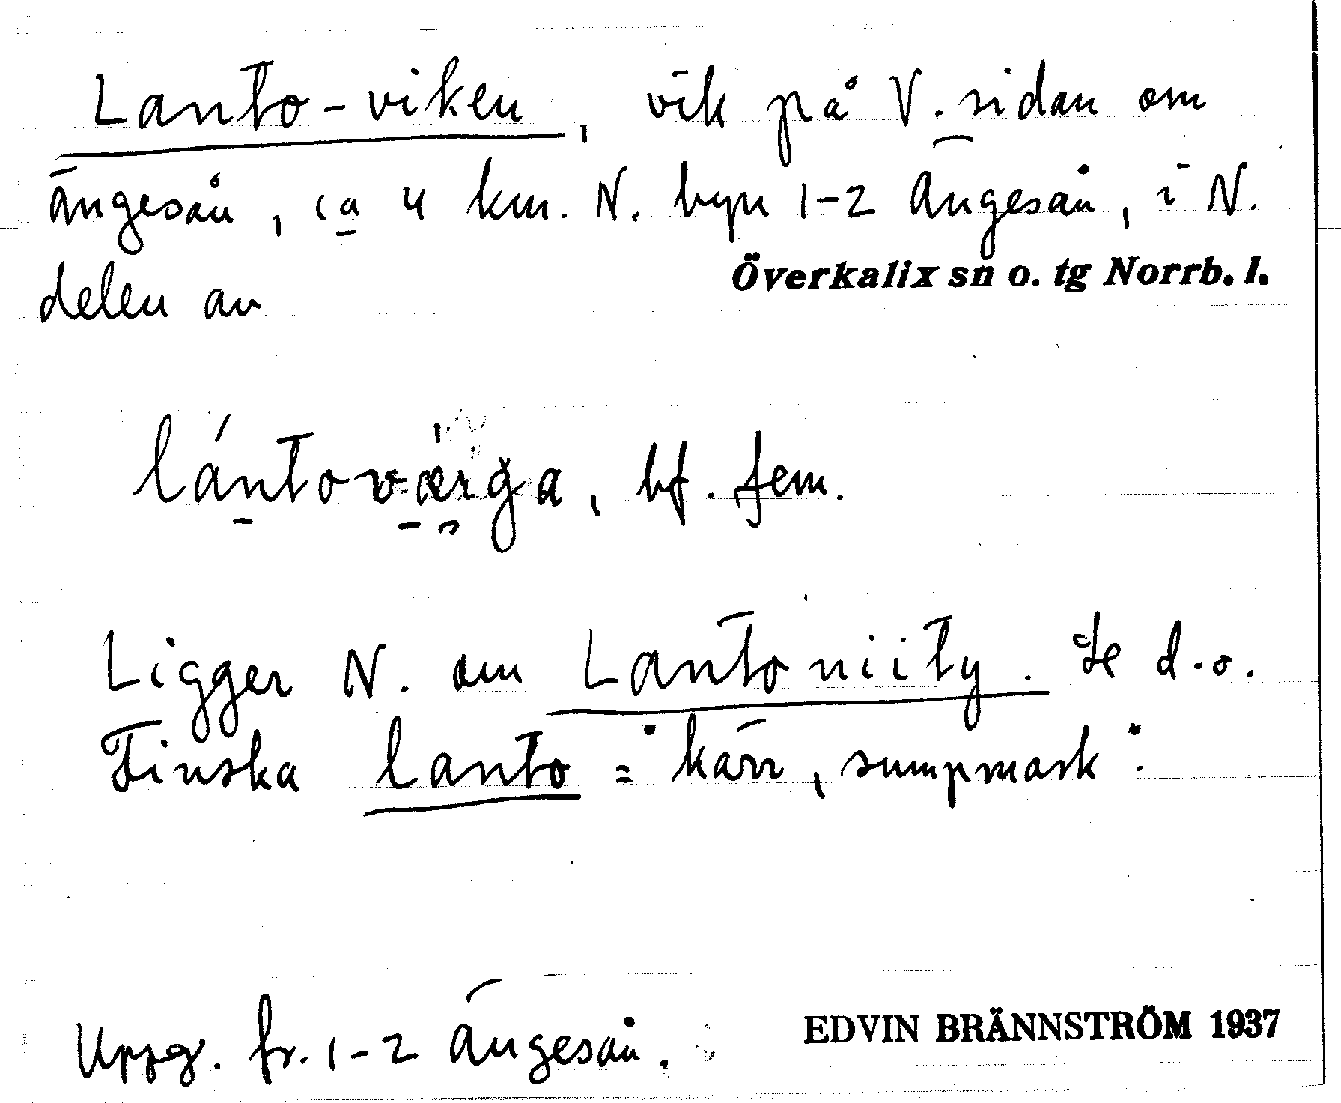 Lanto-viken, vik på V. sidan om
Ängesån, ca 4 km. N. byn 1-2 Ängesån, i N.
delen av Överkalix sn o. tg Norrb. l.
lántovärga, bf. fem.
Ligger N. om Lantoniity. Se d.o.
Finska lanto = "kärr, sumpmark".
Uppg. fr. 1-2 Ängesån.
EDVIN BRÄNNSTRÖM 1937